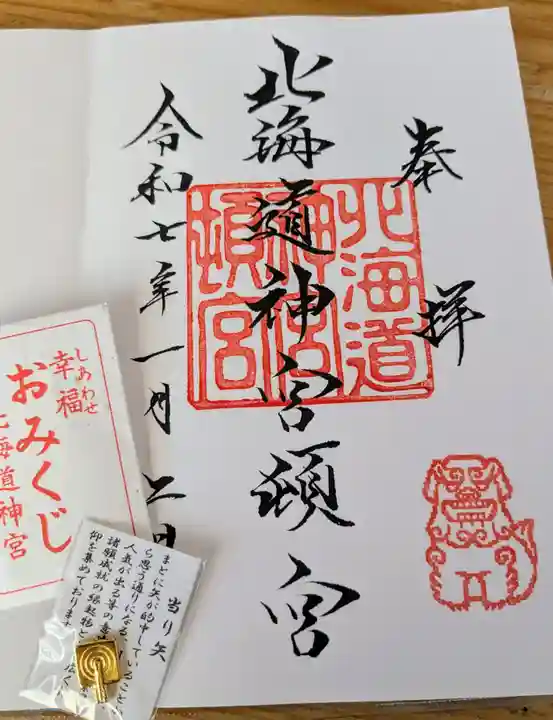 奉拝
北海道神宮頓宮
北海道
神宮
頓宮
令和七年一月二日
しあわせ
幸福
おみくじ
北海道神宮
当り矢
まとに矢が的中していること
ら思う通りになる
人気が出る等の意
諸願成就の縁起物と
仰を集めております